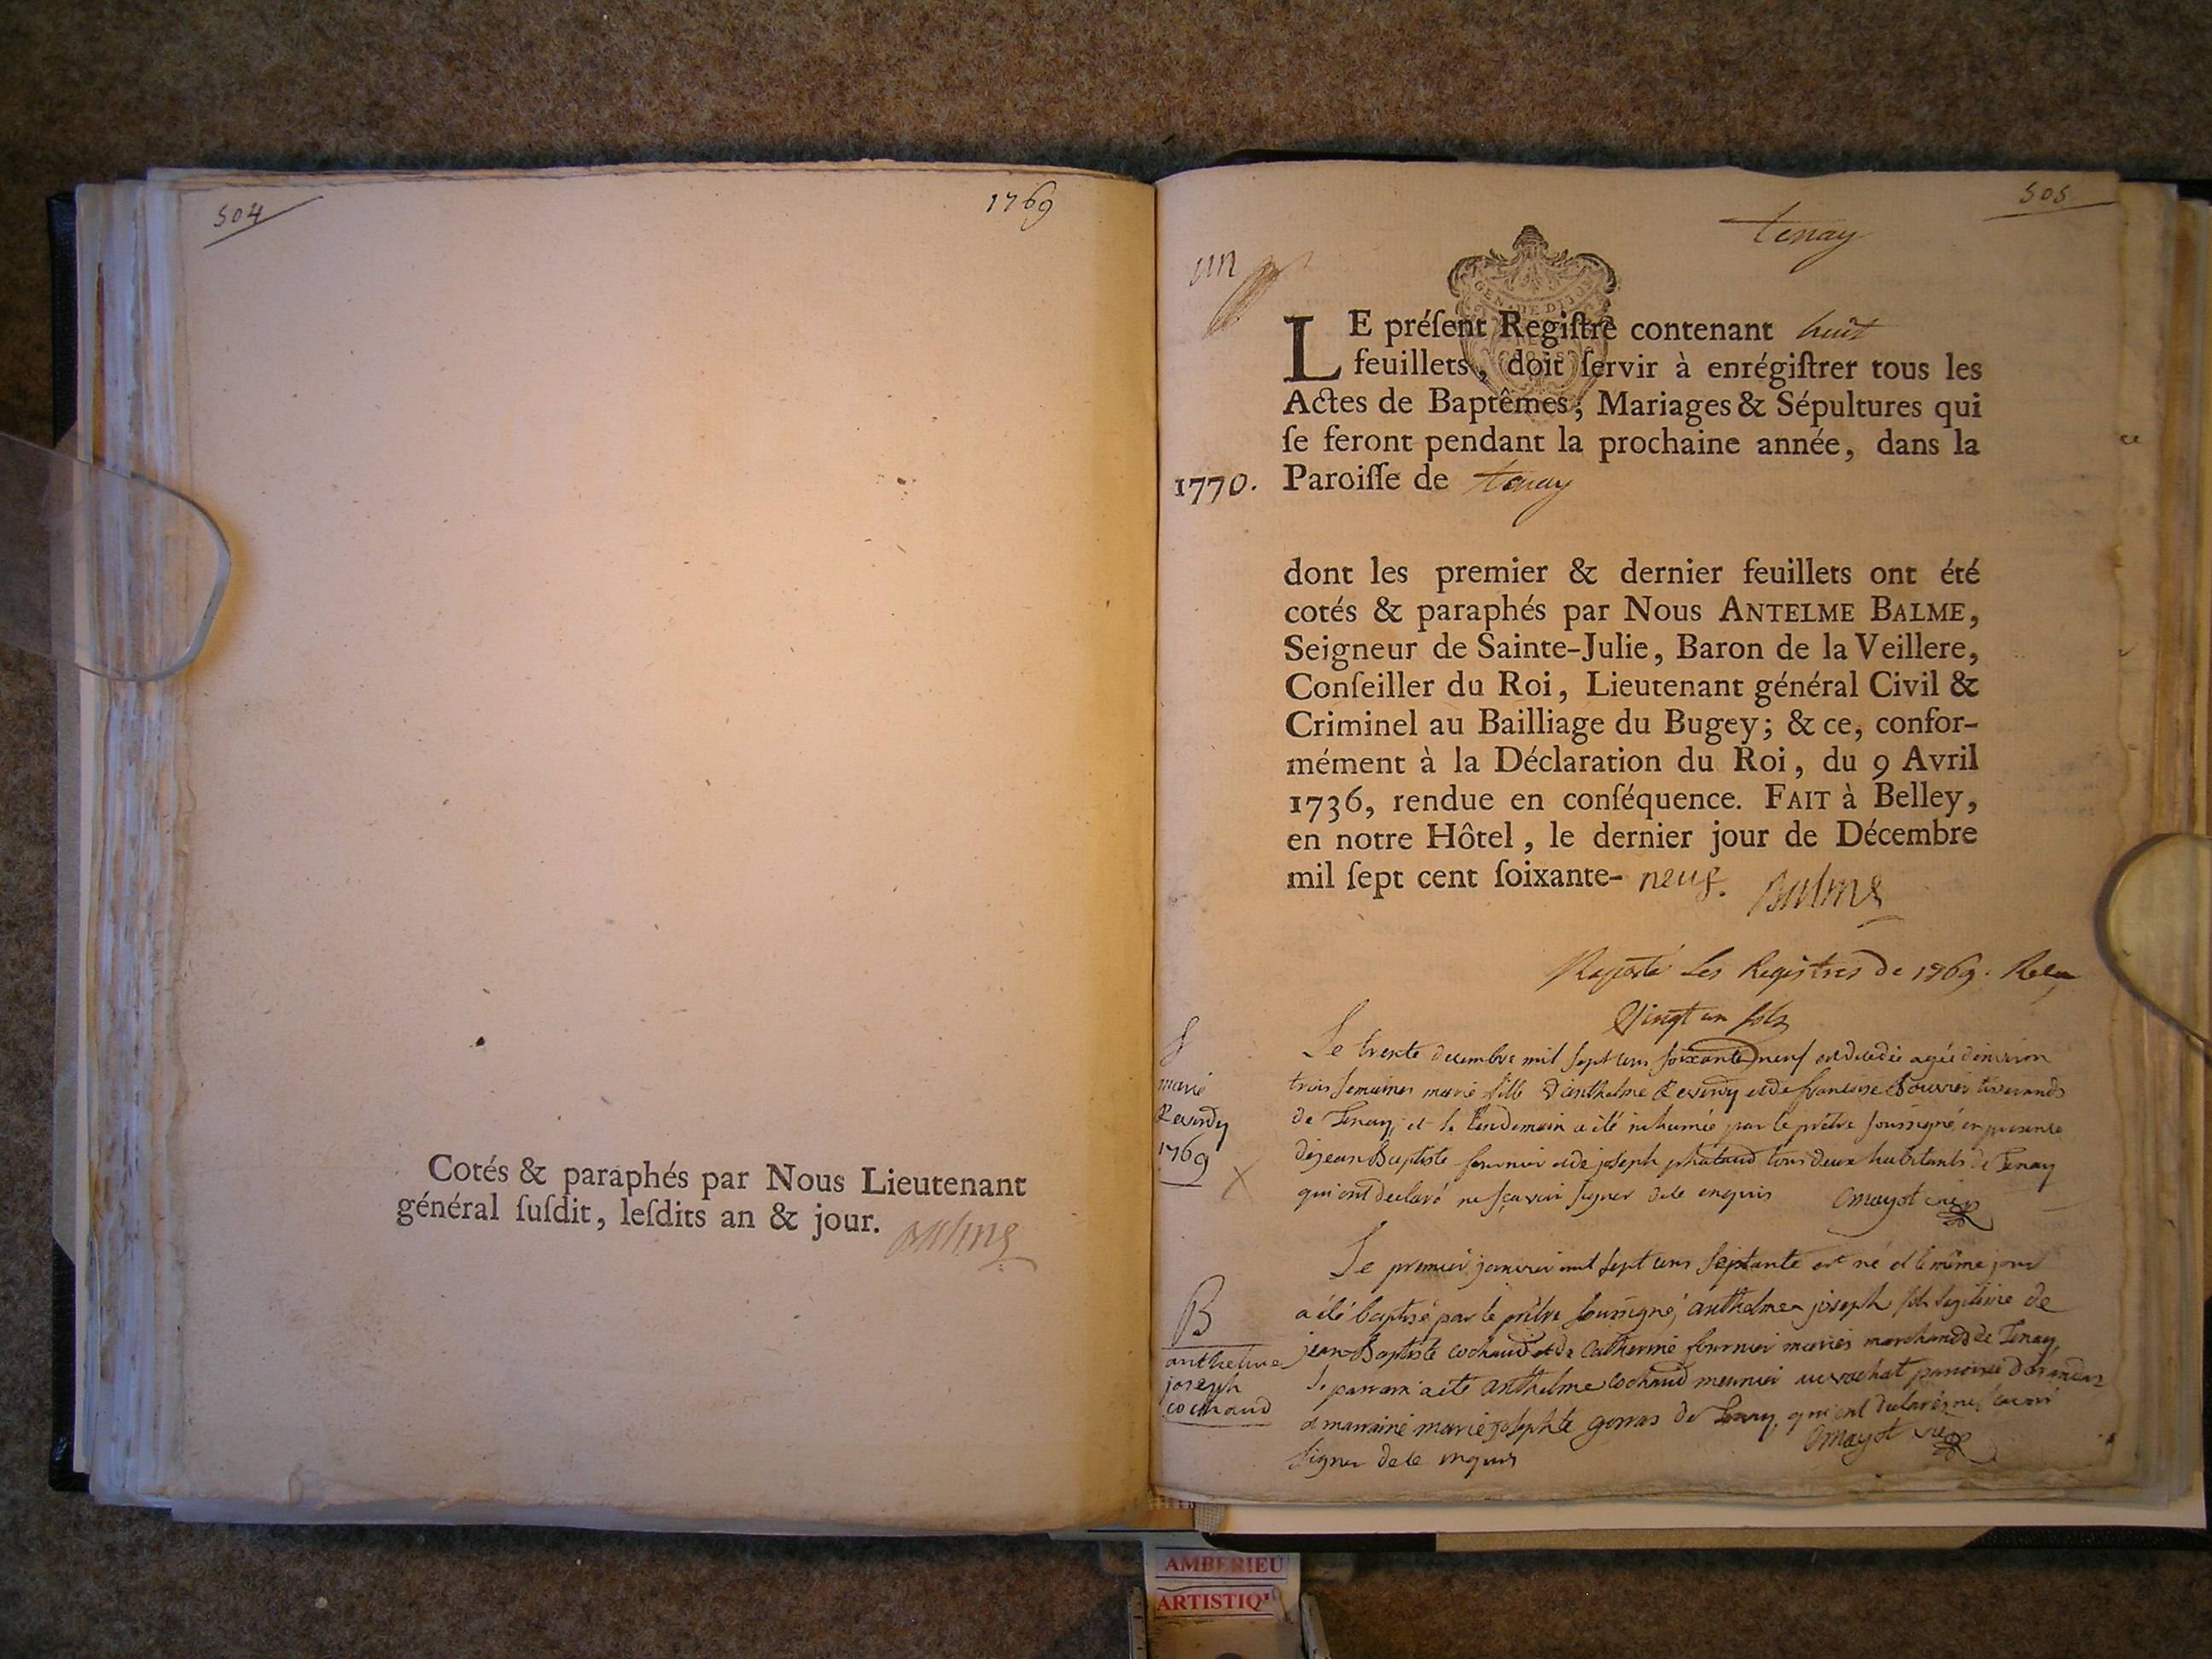 504
1769
Cotés & paraphés par Nous Lieutenant
général ſuſdit, leſdits an & jour. Balme
505
tenay
un
GEN. DE DIJON
LE préſent Regiſtre contenant huit
feuillets, doit ſervir à enrégiſtrer tous les
Actes de Baptêmes, Mariages & Sépultures qui
ſe feront pendant la prochaine année, dans la
1770. Paroiſſe de tenay
dont les premier & dernier feuillets ont été
cotés & paraphés par Nous ANTELME BALME,
Seigneur de Sainte-Julie, Baron de la Veillere,
Conſeiller du Roi, Lieutenant général Civil &
Criminel au Bailliage du Bugey; & ce, confor-
mément à la Déclaration du Roi, du 9 Avril
1736, rendue en conſéquence. FAIT à Belley,
en notre Hôtel, le dernier jour de Décembre
mil ſept cent ſoixante- neuf. Balme
Les Registres de 1769.
Vingt un sols
S
marie
Reverdy
1769
Le trente decembre mil sept cens soixante neuf est decedée agée d'environ
trois semaines marie fille d'anthelme Reverdy et de françoise Bouvier tisserands
de Tenay, et le lendemain a été inhumée par le prêtre soussigné, en presence
de jean Baptiste fournier et de joseph tous deux habitants de Tenay
qui ont declaré ne sçavoir signer de ce enquis
B
anthelme
joseph
cochaud
Le premier janvier mil sept cens septante est né et le même jour
a été baptisé par le prêtre soussigné, anthelme joseph fils legitime de
jean Baptiste cochaud et de Catherine fournier mariés marchands de Tenay,
le parrain a été anthelme cochaud meunier
et marraine marie josephte de Tenay, qui ont declaré ne sçavoir
signer de ce enquis
AMBERIEU
ARTISTIQ